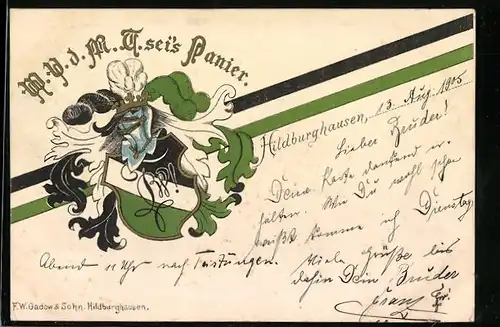 W. V. d. M. T. sei's Panier.
Hildburghausen, 13. Aug. 1905
Lieber Bruder!
Deine Karte dankend er-
halten. Wie Du wohl schon
weißt komme ich Dienstag
Abend 11 Uhr nach
Viele Grüße bis
dahin Dein Bruder
Franz
F. W. Gadow & Sohn, Hildburghausen.